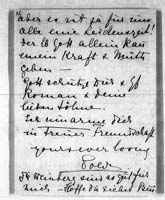 aber es ist ja für uns
alle eine Leidenszeit!
Der lb Gott allein kan
einem Kraft & Muth
geben —
Gott schütze Dich & Gf
Roman & Deine
lieben Söhne.
Ich umarme Dich
in treuer Freundschaft
yours ever loving
sind so gut für
mich — Hoffe